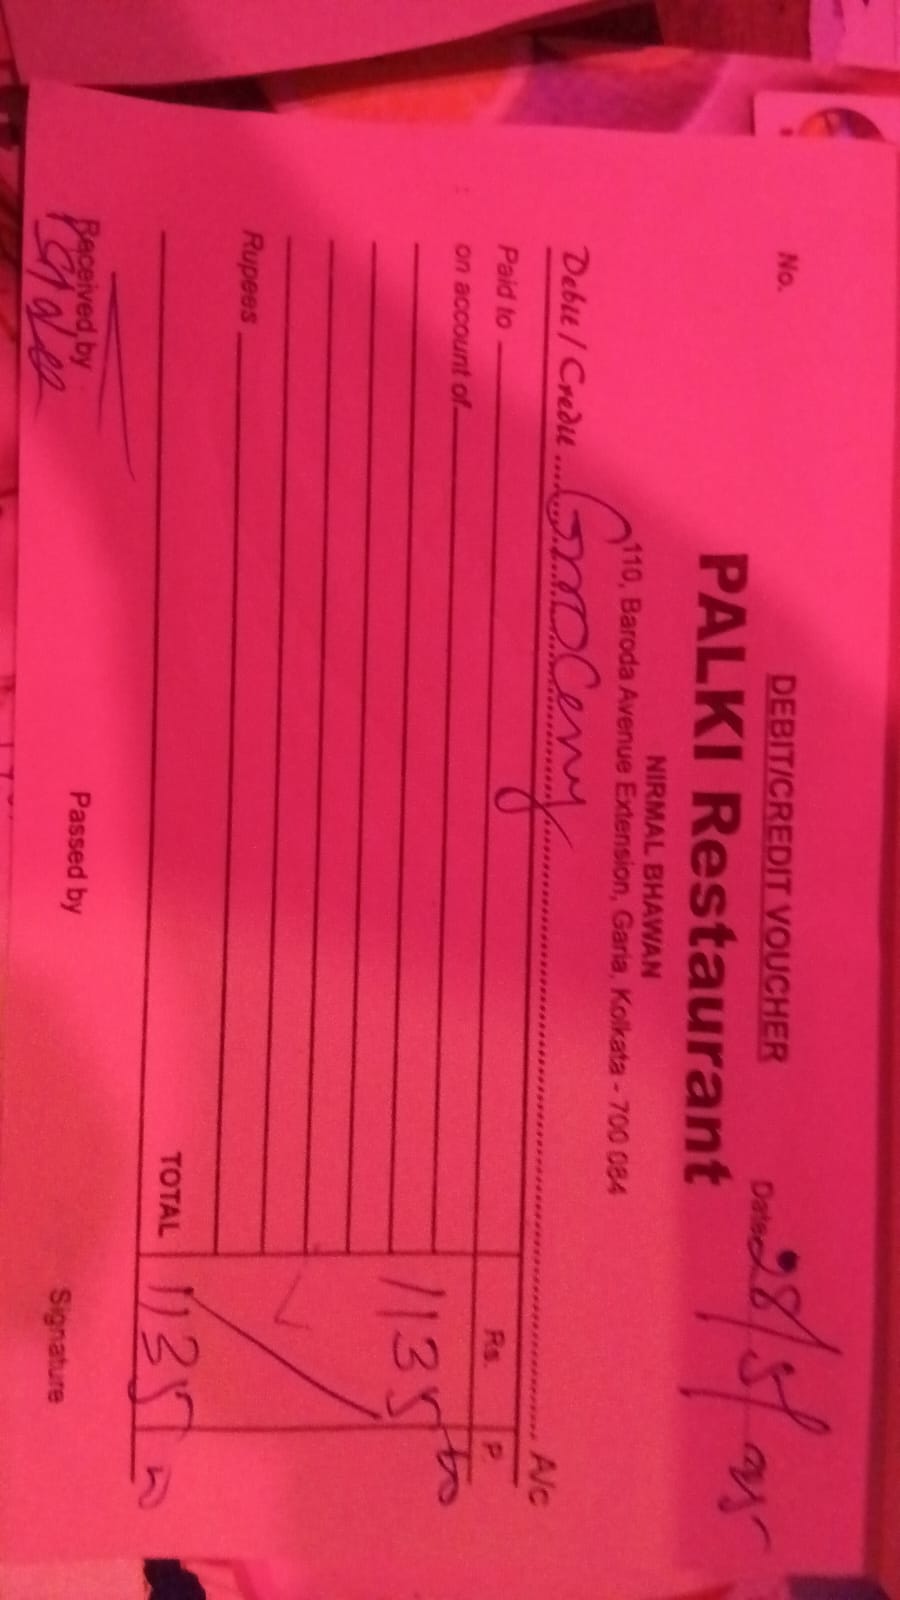 DEBIT/CREDIT VOUCHER
No.
Date 28/5/25
PALKI Restaurant
NIRMAL BHAWAN
110, Baroda Avenue Extension, Garia, Kolkata - 700 084
Debit / Credit Grocery A/c
Paid to Rs. P.
on account of 1135 00
Rupees
TOTAL 1135 00
Received by Passed by Signature